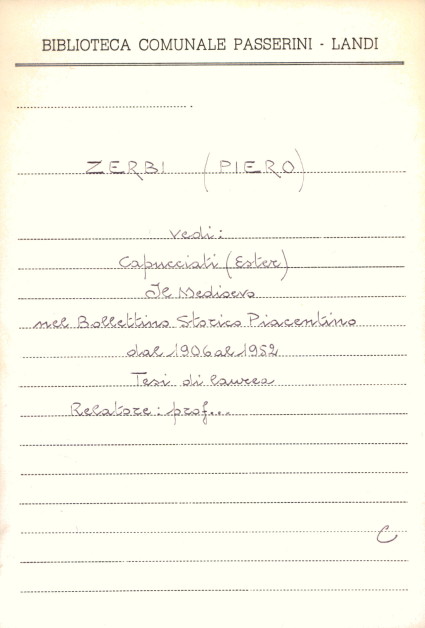 BIBLIOTECA COMUNALE PASSERINI - LANDI
ZERBI (PIERO)
vedi:
Capucciati (Ester)
Il Medioevo
nel Bollettino Storico Piacentino
dal 1906 al 1952
Tesi di laurea
Relatore: prof...
C